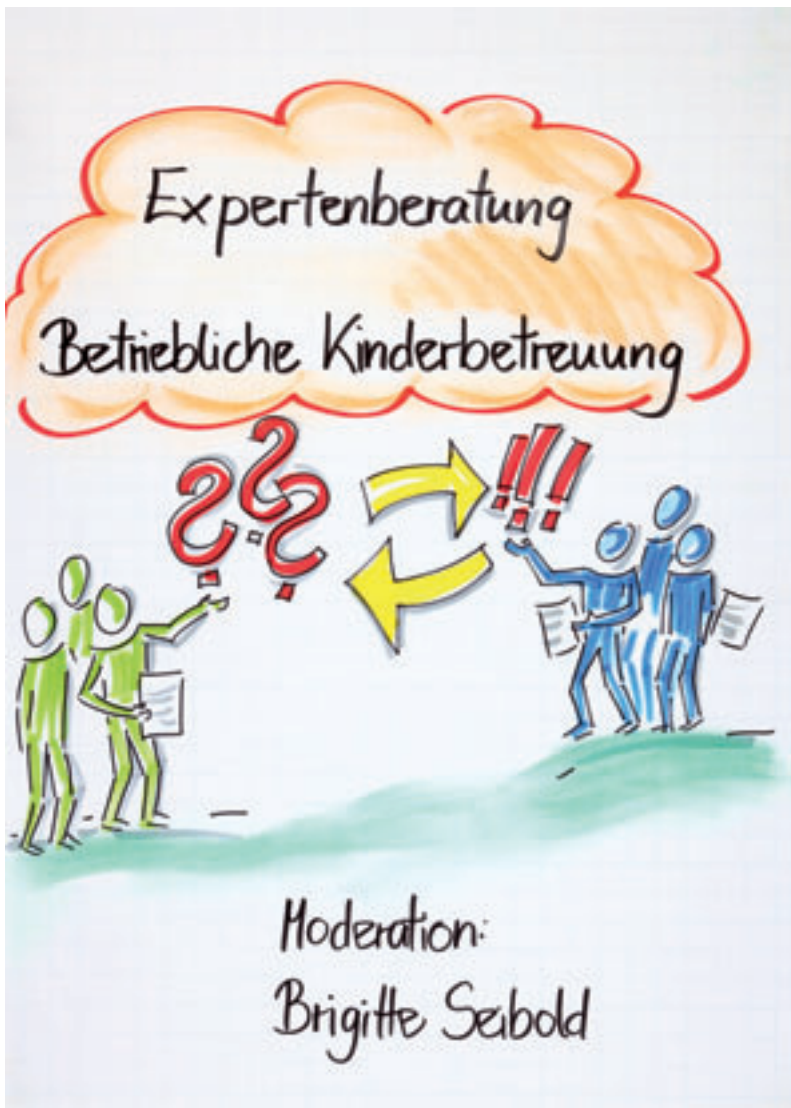 Expertenberatung
Betriebliche Kinderbetreuung
???
!!!
Moderation:
Brigitte Seibold